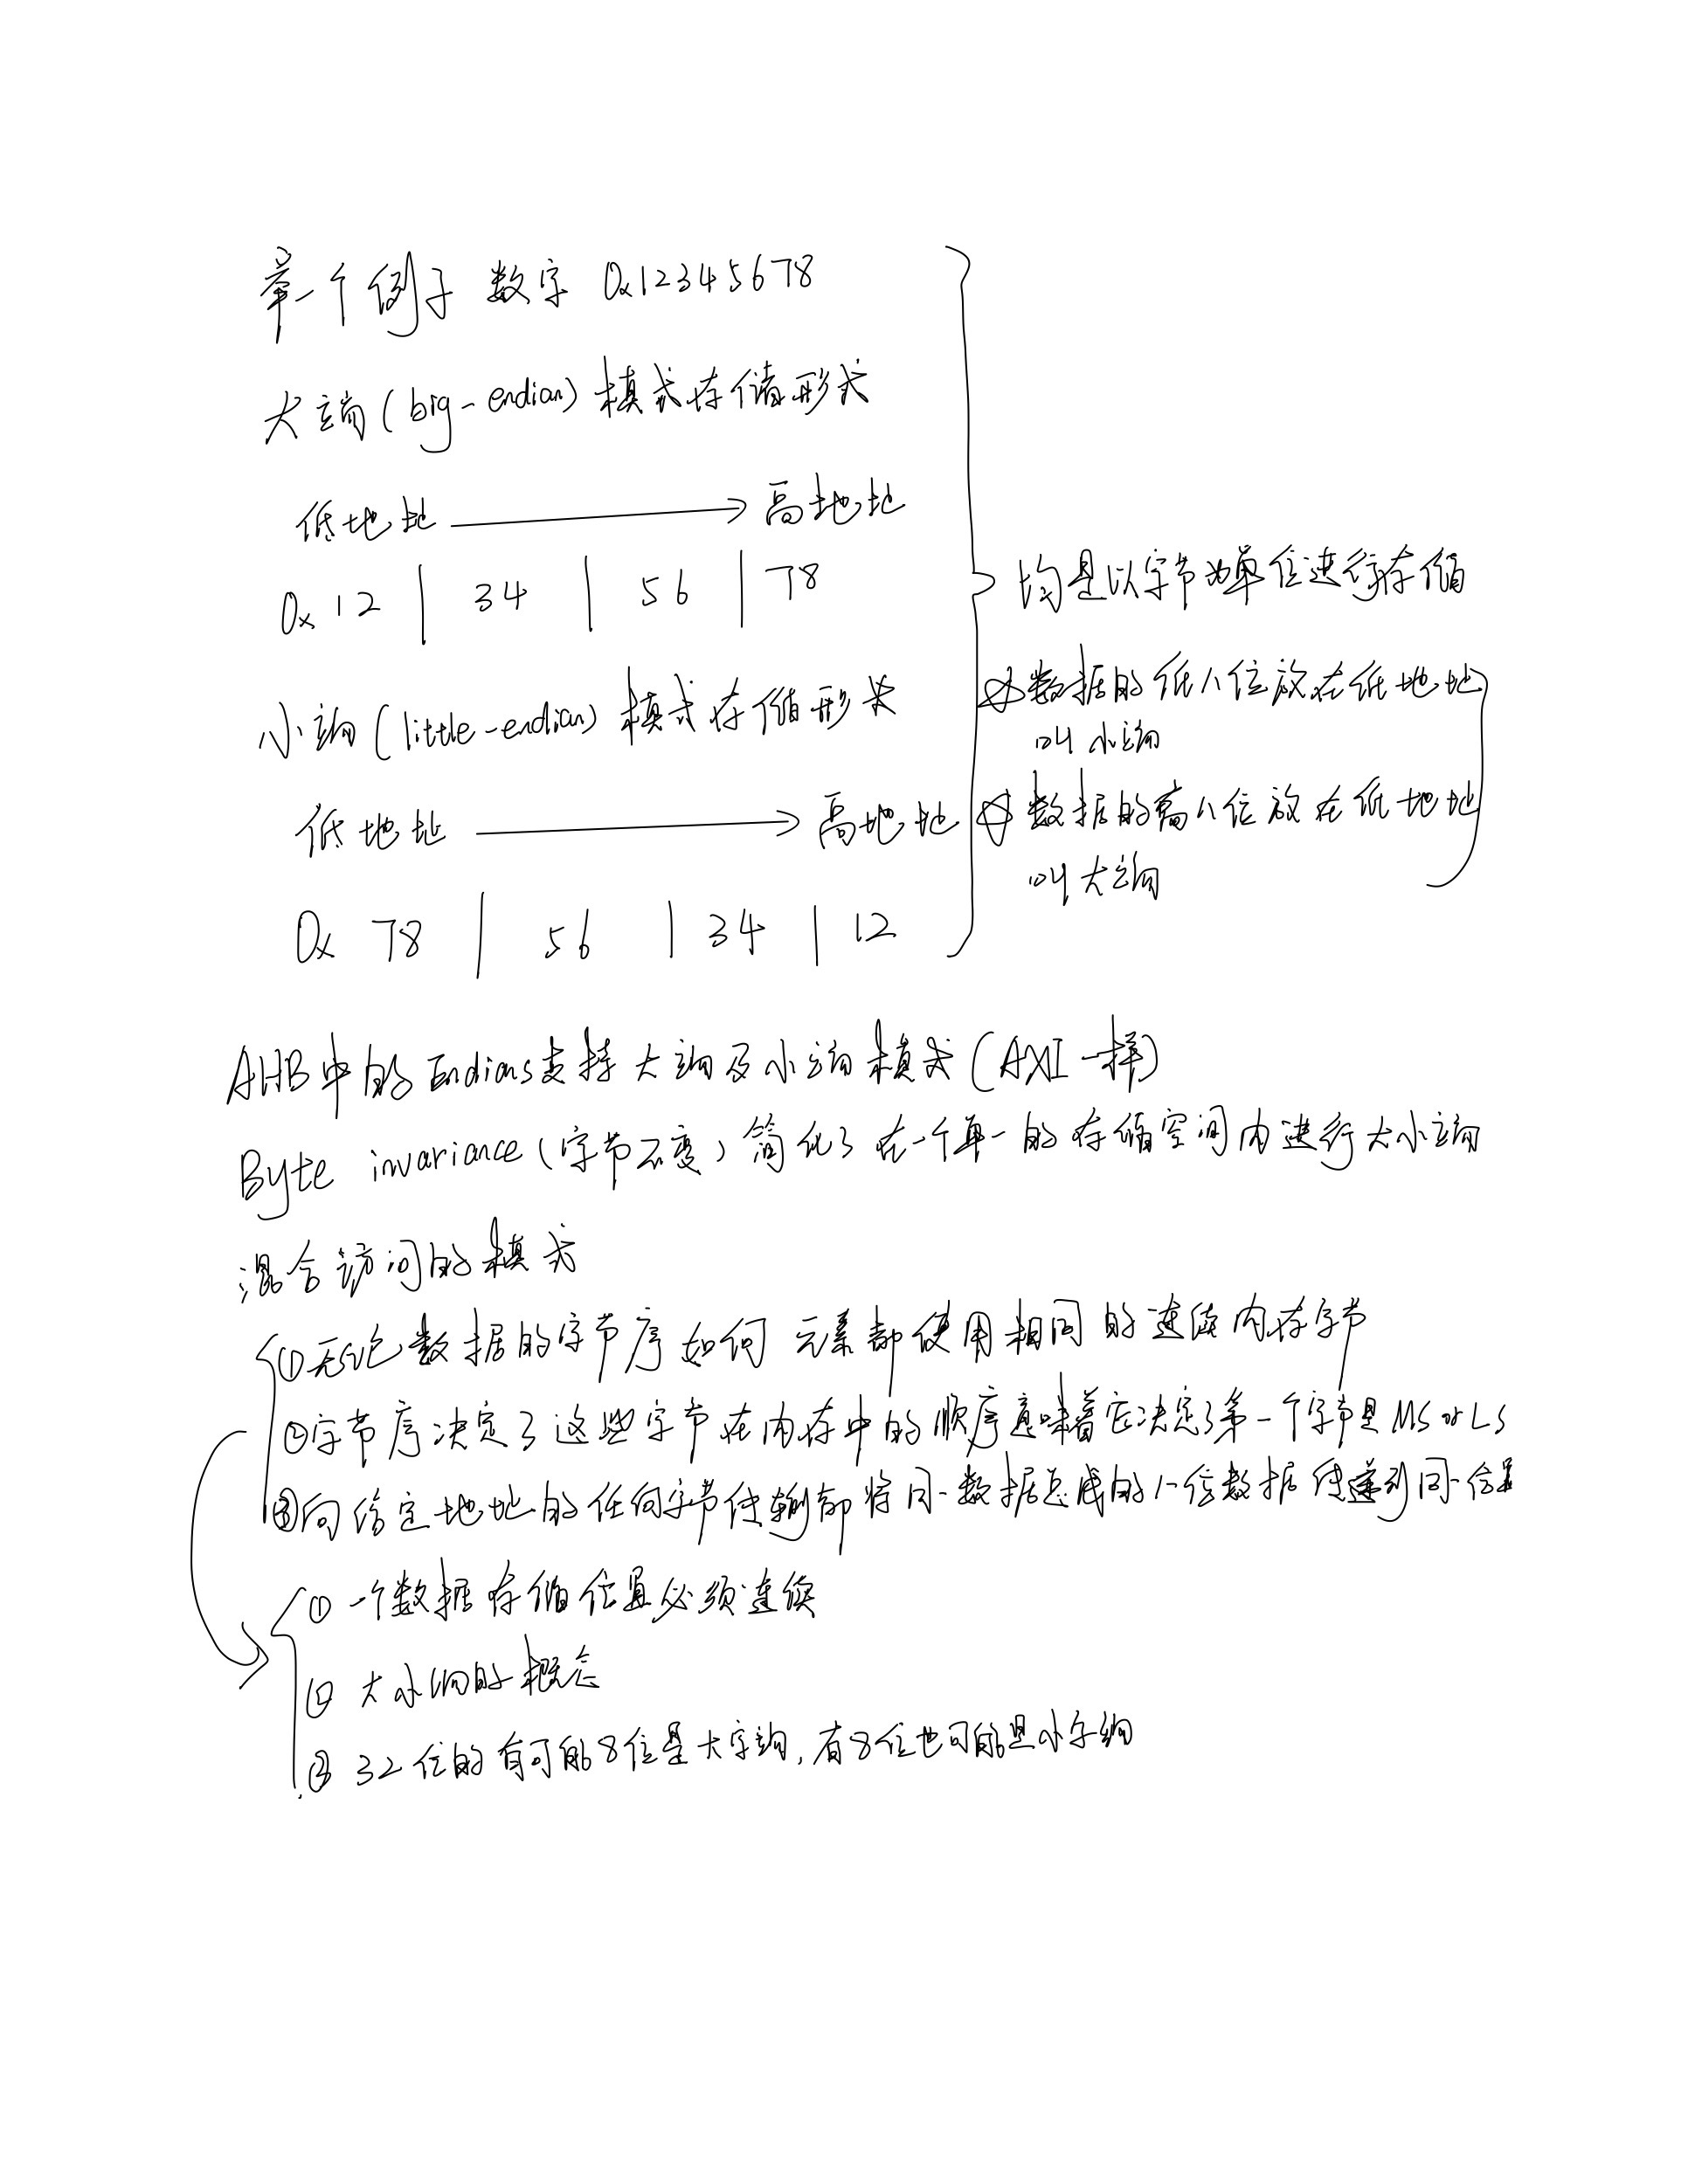 举一个例子 数字 0x12345678
大端(big-endian)模式存储形式
低地址 → 高地址
0x 12 | 34 | 56 | 78
小端(little-endian)模式存储形式
低地址 → 高地址
0x 78 | 56 | 34 | 12
均是以字节为单位进行存储
数据的低八位放在低地址
叫小端
数据的高八位放在低地址
叫大端
AHB中的Endians支持大端及小端模式(AXI一样)
Byte invariance(字节不变)简化了在一个单一的存储空间内进行大小端
混合访问的模式
①无论数据的字节序如何 元素都使用相同的连续内存字节
②字节序决定了这些字节在内存中的顺序意味着它决定了第一个字节是MS or LS
③向给定地址的任何字节传输都将同一数据总线的八位数据传递到同一位置
① 一个数据存储位置必须连续
② 大小端的概念
③ 32位的有可能8位是大字端,有8位也可能是小字端